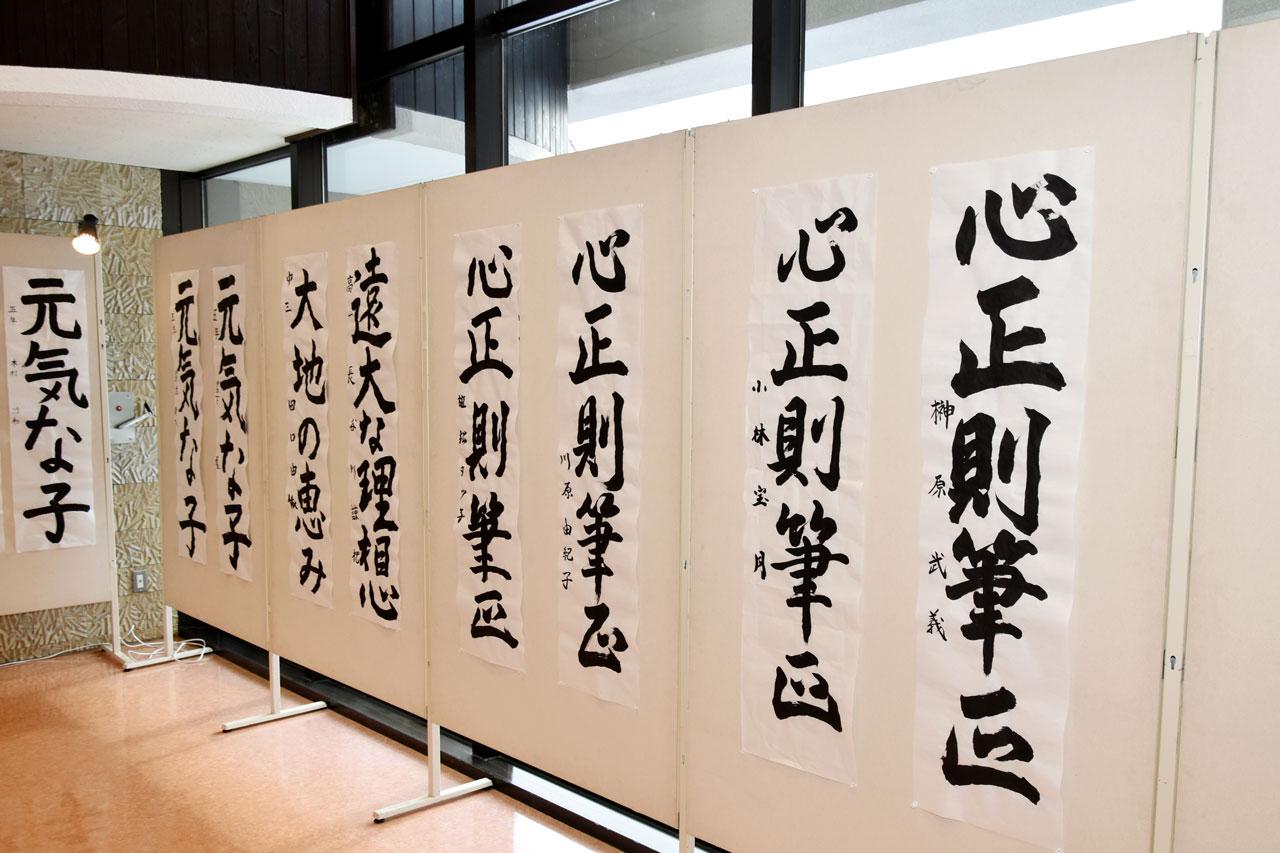 心正則筆正
榊原武義
心正則筆正
小林宝月
心正則筆正
川原由紀子
心正則筆正
遠大な理想
高一
大地の恵み
中三
田口由
元気な子
五年
元気な子
元気な子
五年
木村